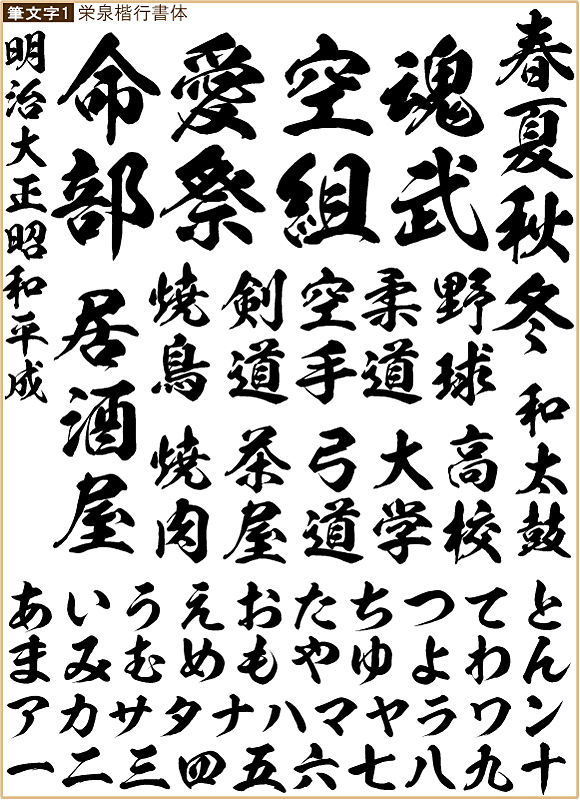 筆文字1 栄泉楷行書体
春夏秋冬
和太鼓
魂武
空組
愛祭
命部
野球
高校
柔道
大学
空手
弓道
剣道
茶屋
焼鳥
焼肉
居酒屋
明治大正昭和平成
あいうえおたちつてと
まみむめもやゆよわん
アカサタナハマヤラワン
一二三四五六七八九十